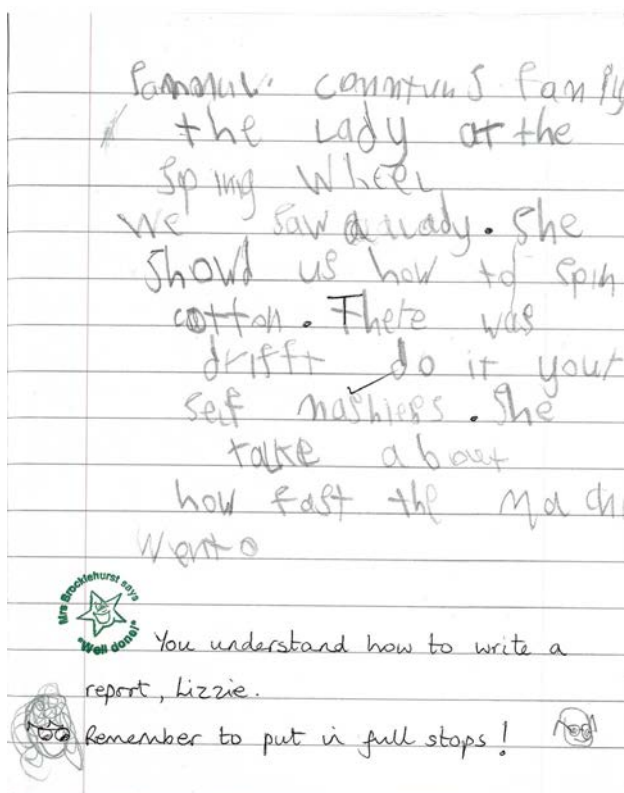 family
the Lady at the
sping Wheel
We saw a lady. She
showd us how to spin
cotton. There was
drifft do it your
self mashiers. She
talke about
how fast the Mach
went
Mrs Brocklehurst says
"Well done!"
You understand how to write a
report, Lizzie.
Remember to put in full stops!